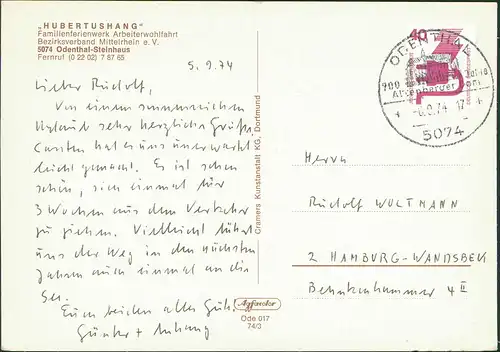 „HUBERTUSHANG"
Familienferienwerk Arbeiterwohlfahrt
Bezirksverband Mittelrhein e. V.
5074 Odenthal-Steinhaus
Fernruf (0 22 02) 7 87 65
5.9.74
Lieber Rudolf,
Von einem sonnenreichen
Urlaub sehr herzliche Grüße.
Carsten hat es uns unerwartet
leicht gemacht. Es ist schon
schön, sich einmal für
3 Wochen aus dem Verkehr
zu ziehen. Vielleicht führt
uns der Weg in den nächsten
Jahren auch einmal an die
See.
Euch beiden alles Gute,
Günter + Anhang
Cramers Kunstanstalt KG, Dortmund
Agfacolor
Ode 017
74/3
40
ODENTHAL
700 Jahre
Altenberger Dom
-6.9.74.17
5074
Herrn
Rudolf WULTMANN
2 HAMBURG-WANDSBEK
4 II